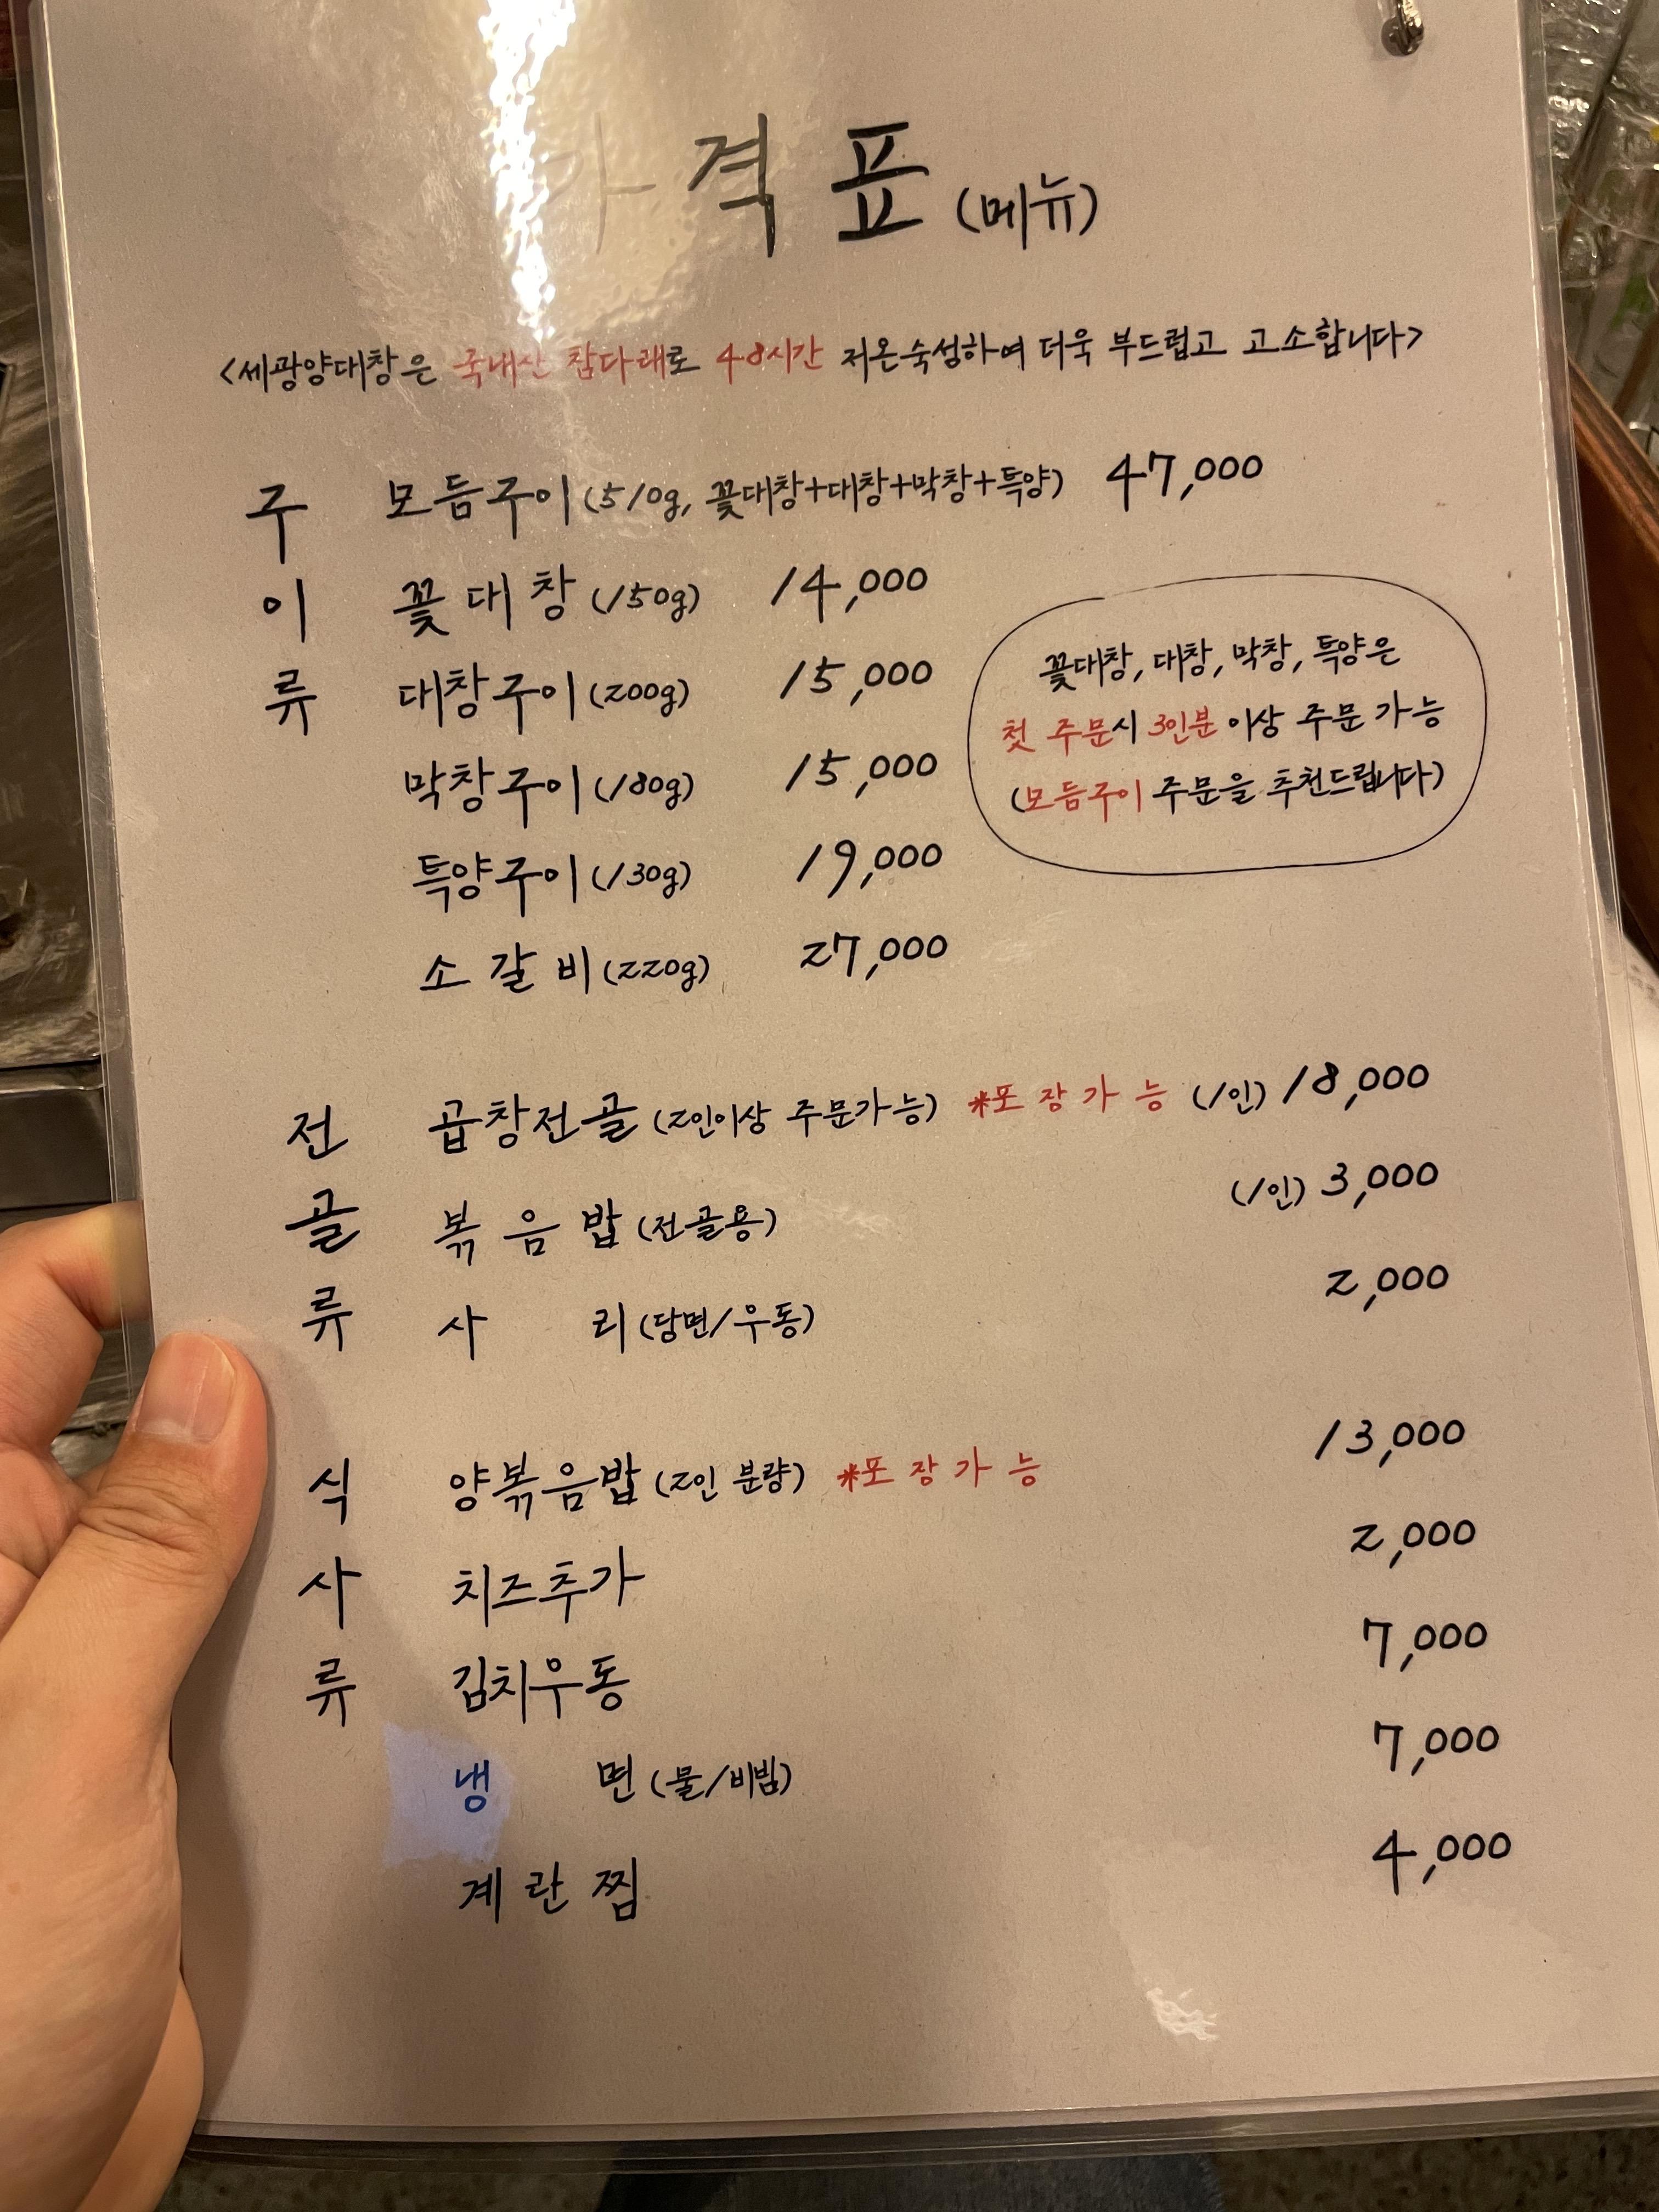 가격표 (메뉴)
<세광양대창은 국내산 참다래로 48시간 저온숙성하여 더욱 부드럽고 고소합니다>
구이류
모듬구이 (510g, 꽃대창+대창+막창+특양) 47,000
꽃대창 (150g) 14,000
대창구이 (200g) 15,000
막창구이 (180g) 15,000
특양구이 (130g) 19,000
소갈비 (220g) 27,000
꽃대창, 대창, 막창, 특양은
첫 주문시 3인분 이상 주문 가능
(모듬구이 주문을 추천드립니다)
전골류
곱창전골 (2인이상 주문가능) *포장가능 (1인) 18,000
볶음밥 (전골용) (1인) 3,000
사리 (당면/우동) 2,000
식사류
양볶음밥 (2인 분량) *포장가능 13,000
치즈추가 2,000
김치우동 7,000
냉면 (물/비빔) 7,000
계란찜 4,000